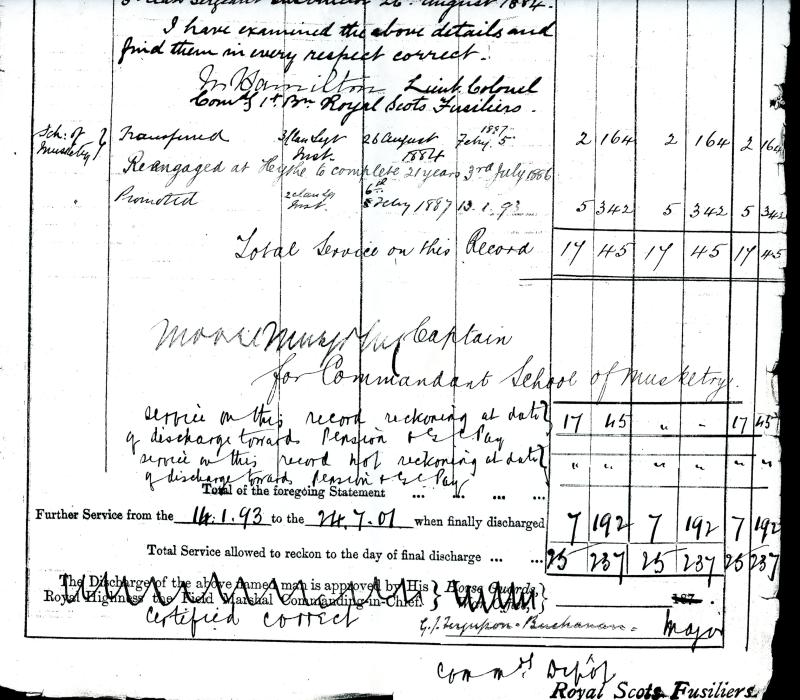 Sergeant Instructor 26 August 1884.
I have examined the above details and
find them in every respect correct.
Hamilton Lieut. Colonel
Comg 1st Bn Royal Scots Fusiliers.
Sch: of Musketry } Transferred 26 August 1884 Feby. 5 1887 2 164 2 164 2 164
Inst.
Reengaged at Hythe to complete 21 years 3rd July 1886
" Promoted Inst. 6th Feby 1887 13.1.93 5 342 5 342 5 342
Total Service on this Record 17 45 17 45 17 45
Captain
for Commandant School of Musketry.
Service on this record reckoning at date } 17 45 " " 17 45
of discharge towards Pension & G C Pay
Service on this record not reckoning at date } " " " " " "
of discharge towards Pension & G C Pay
Total of the foregoing Statement ... ... ...
Further Service from the 14.1.93 to the 24.7.01 when finally discharged 7 192 7 192 7 192
Total Service allowed to reckon to the day of final discharge ... ... 25 237 25 237 25 237
The Discharge of the above named man is approved by His } Horse Guards, }
Royal Highness the Field Marshal Commanding-in-Chief 187 .
Certified correct G. J. Ferguson-Buchanan - Major
Comm'g Depôt
Royal Scots Fusiliers.